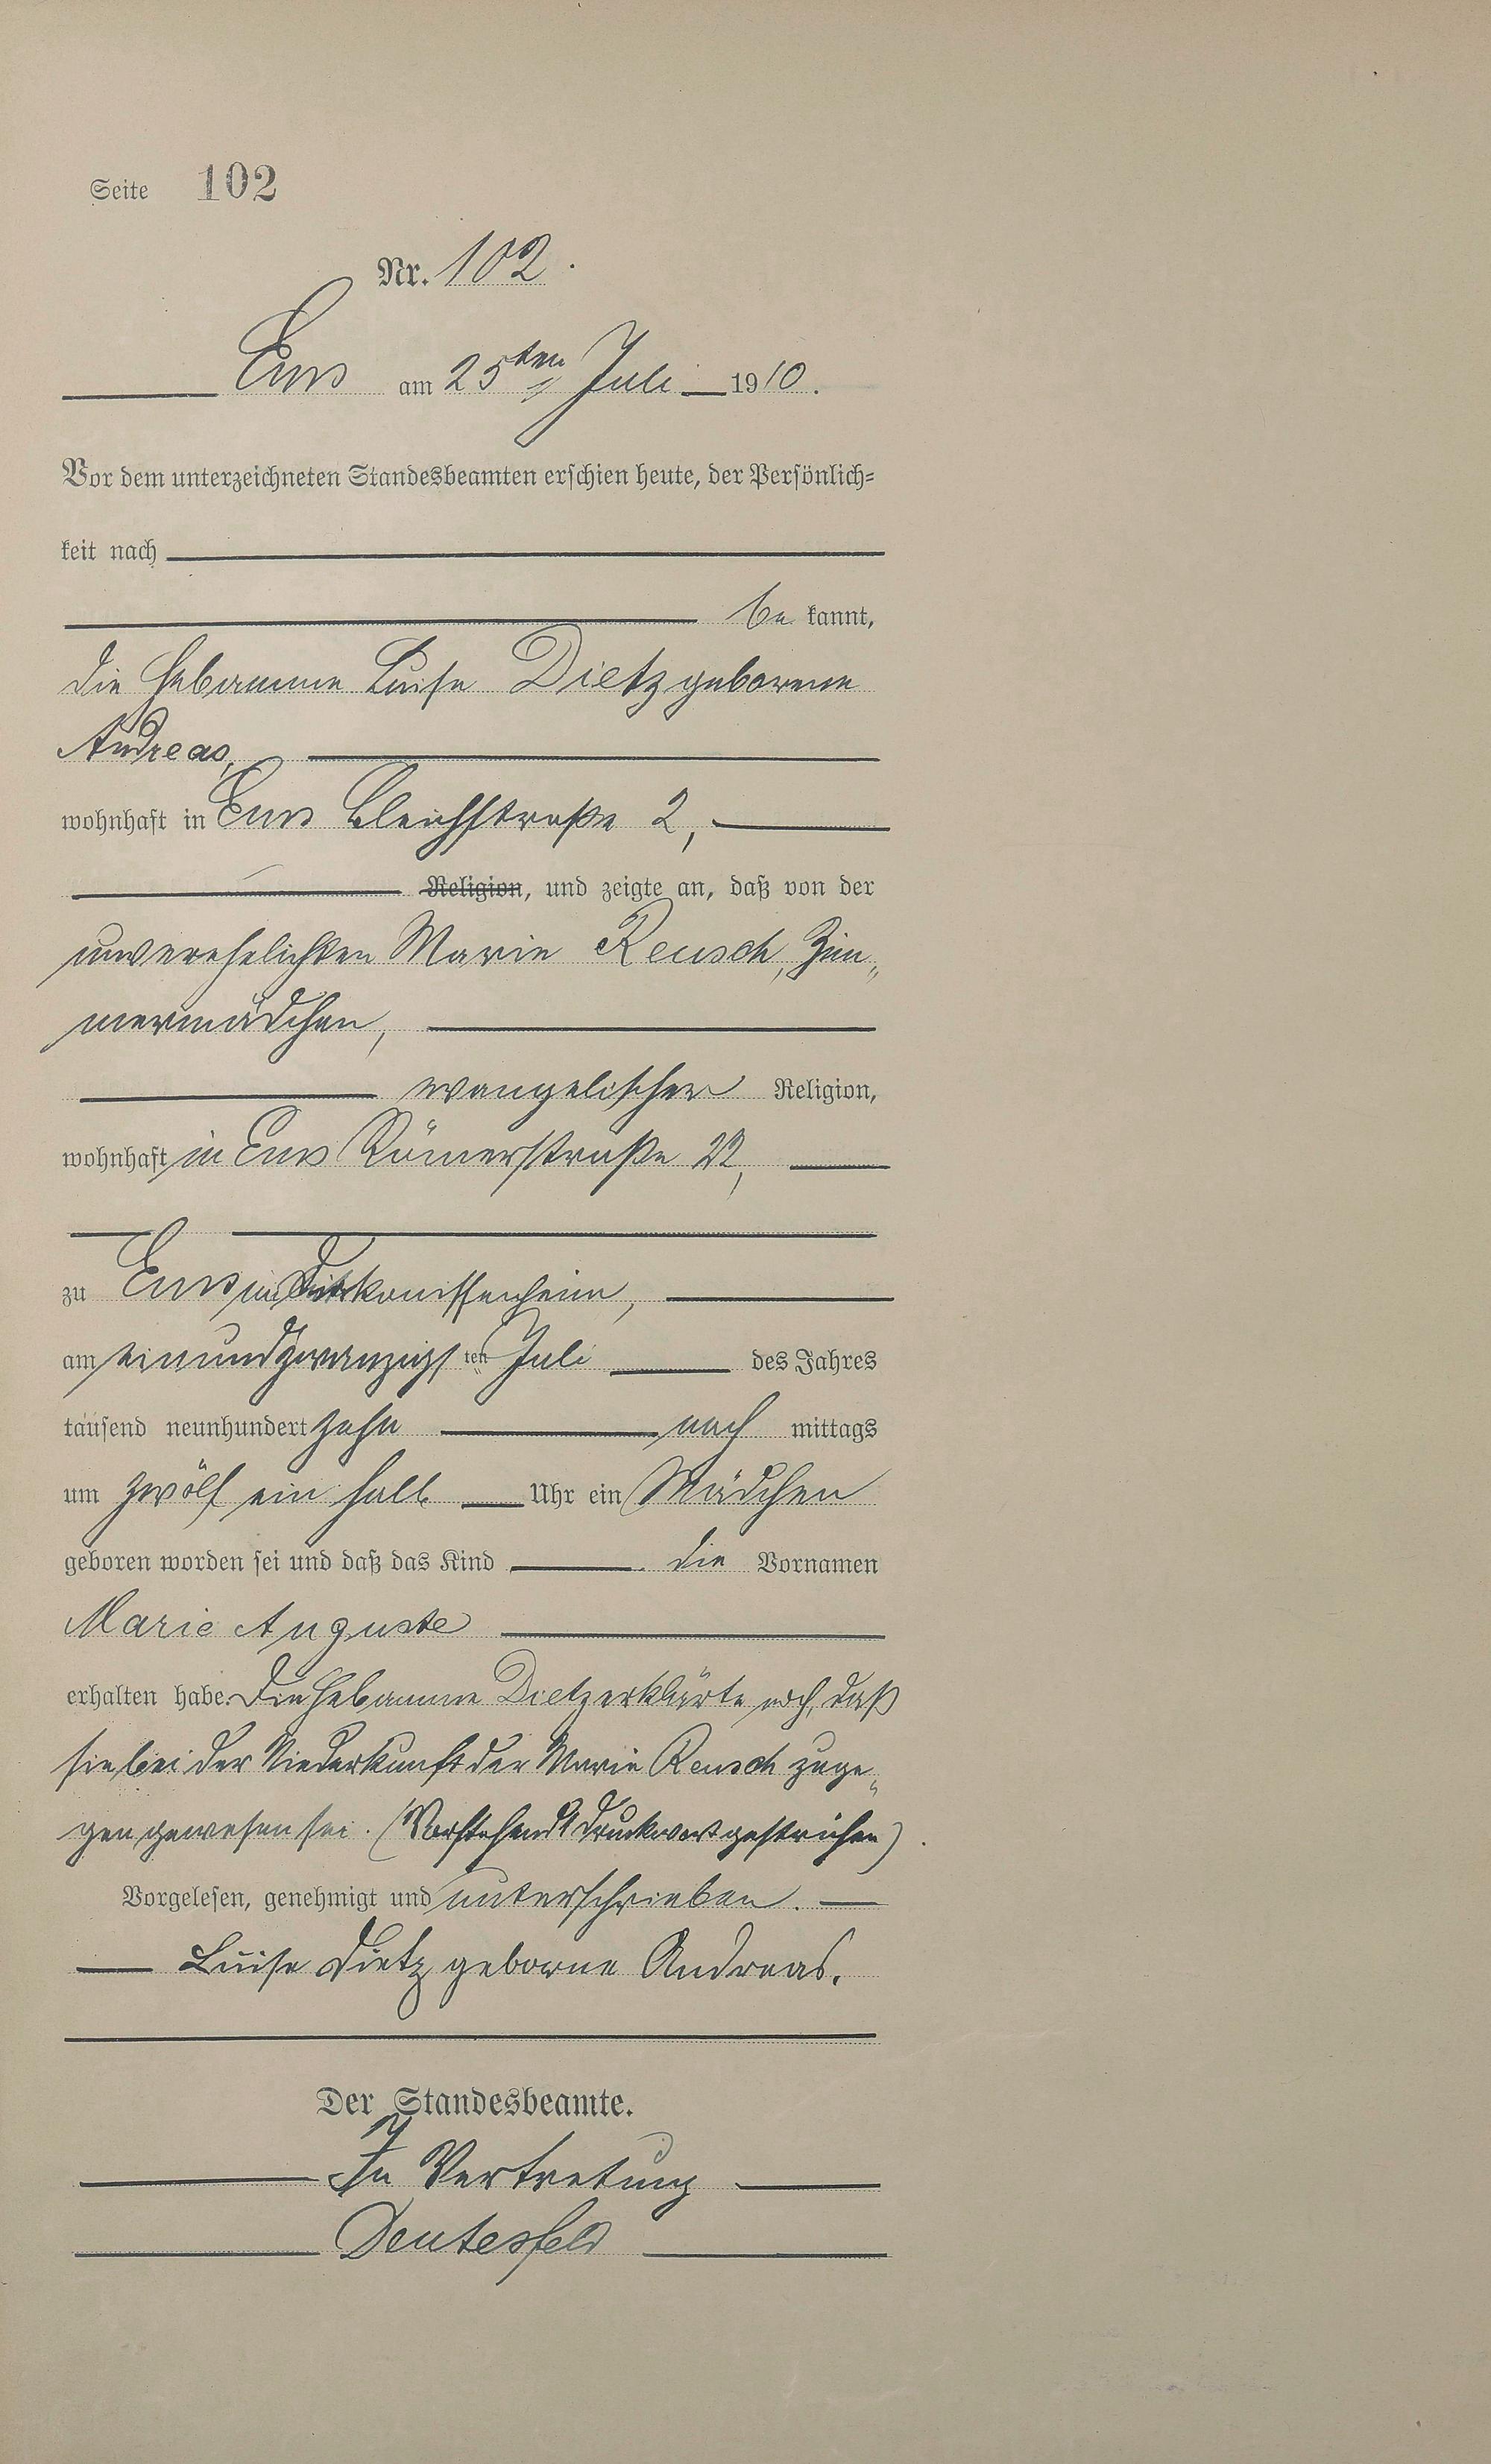 Seite 102
Nr. 102.
Ems am 25ten Juli 1910.
Vor dem unterzeichneten Standesbeamten erschien heute, der Persönlich=
keit nach
be kannt,
die Hebamme Luise Dietz geborene
Andreas,
wohnhaft in Ems Bleichstraße 2,
Religion, und zeigte an, daß von der
unverehelichten Marie Reusch, Zim„
mermädchen,
evangelischer Religion,
wohnhaft in Ems Römerstraße 22,
zu Ems im Diakonissenheim,
am einundzwanzigsten Juli des Jahres
tausend neunhundert zehn nach mittags
um zwölf ein halb Uhr ein Mädchen
geboren worden sei und daß das Kind die Vornamen
Marie Auguste
erhalten habe. Die Hebamme Dietz erklärte noch, daß
sie bei der Niederkunft der Marie Reusch zuge„
gen gewesen sei. (Vorstehend 1 Druckwort gestrichen)
Vorgelesen, genehmigt und unterschrieben.
Luise Dietz geborne Andreas.
Der Standesbeamte.
In Vertretung